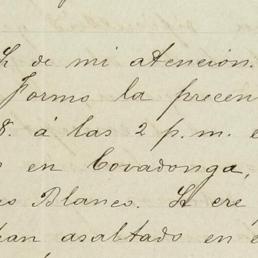 de mi atención.
Formo la precen
8. á las 2 p.m. e
en Covadonga,
s Blanes. Se cre
an asaltado en e